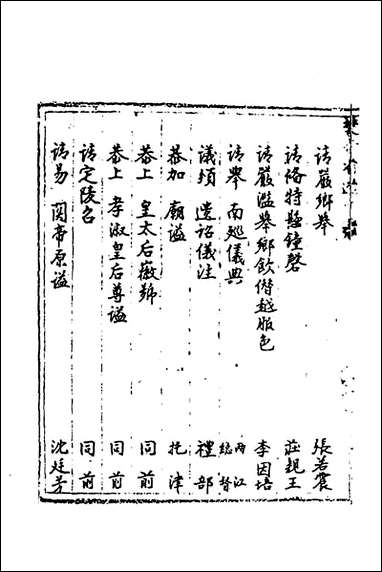 請嚴鄉舉 張若震
請脩特懸鐘磬 莊親王
請嚴濫舉鄉飲僭越服色 李因培
請舉 南巡儀典 兩江總督
議頒 遺詔儀注 禮部
恭加 廟謚 托津
恭上 皇太后徽號 同前
恭上 孝淑皇后尊謚 同前
請定陵名 同前
請易 関帝原謚 沈廷芳